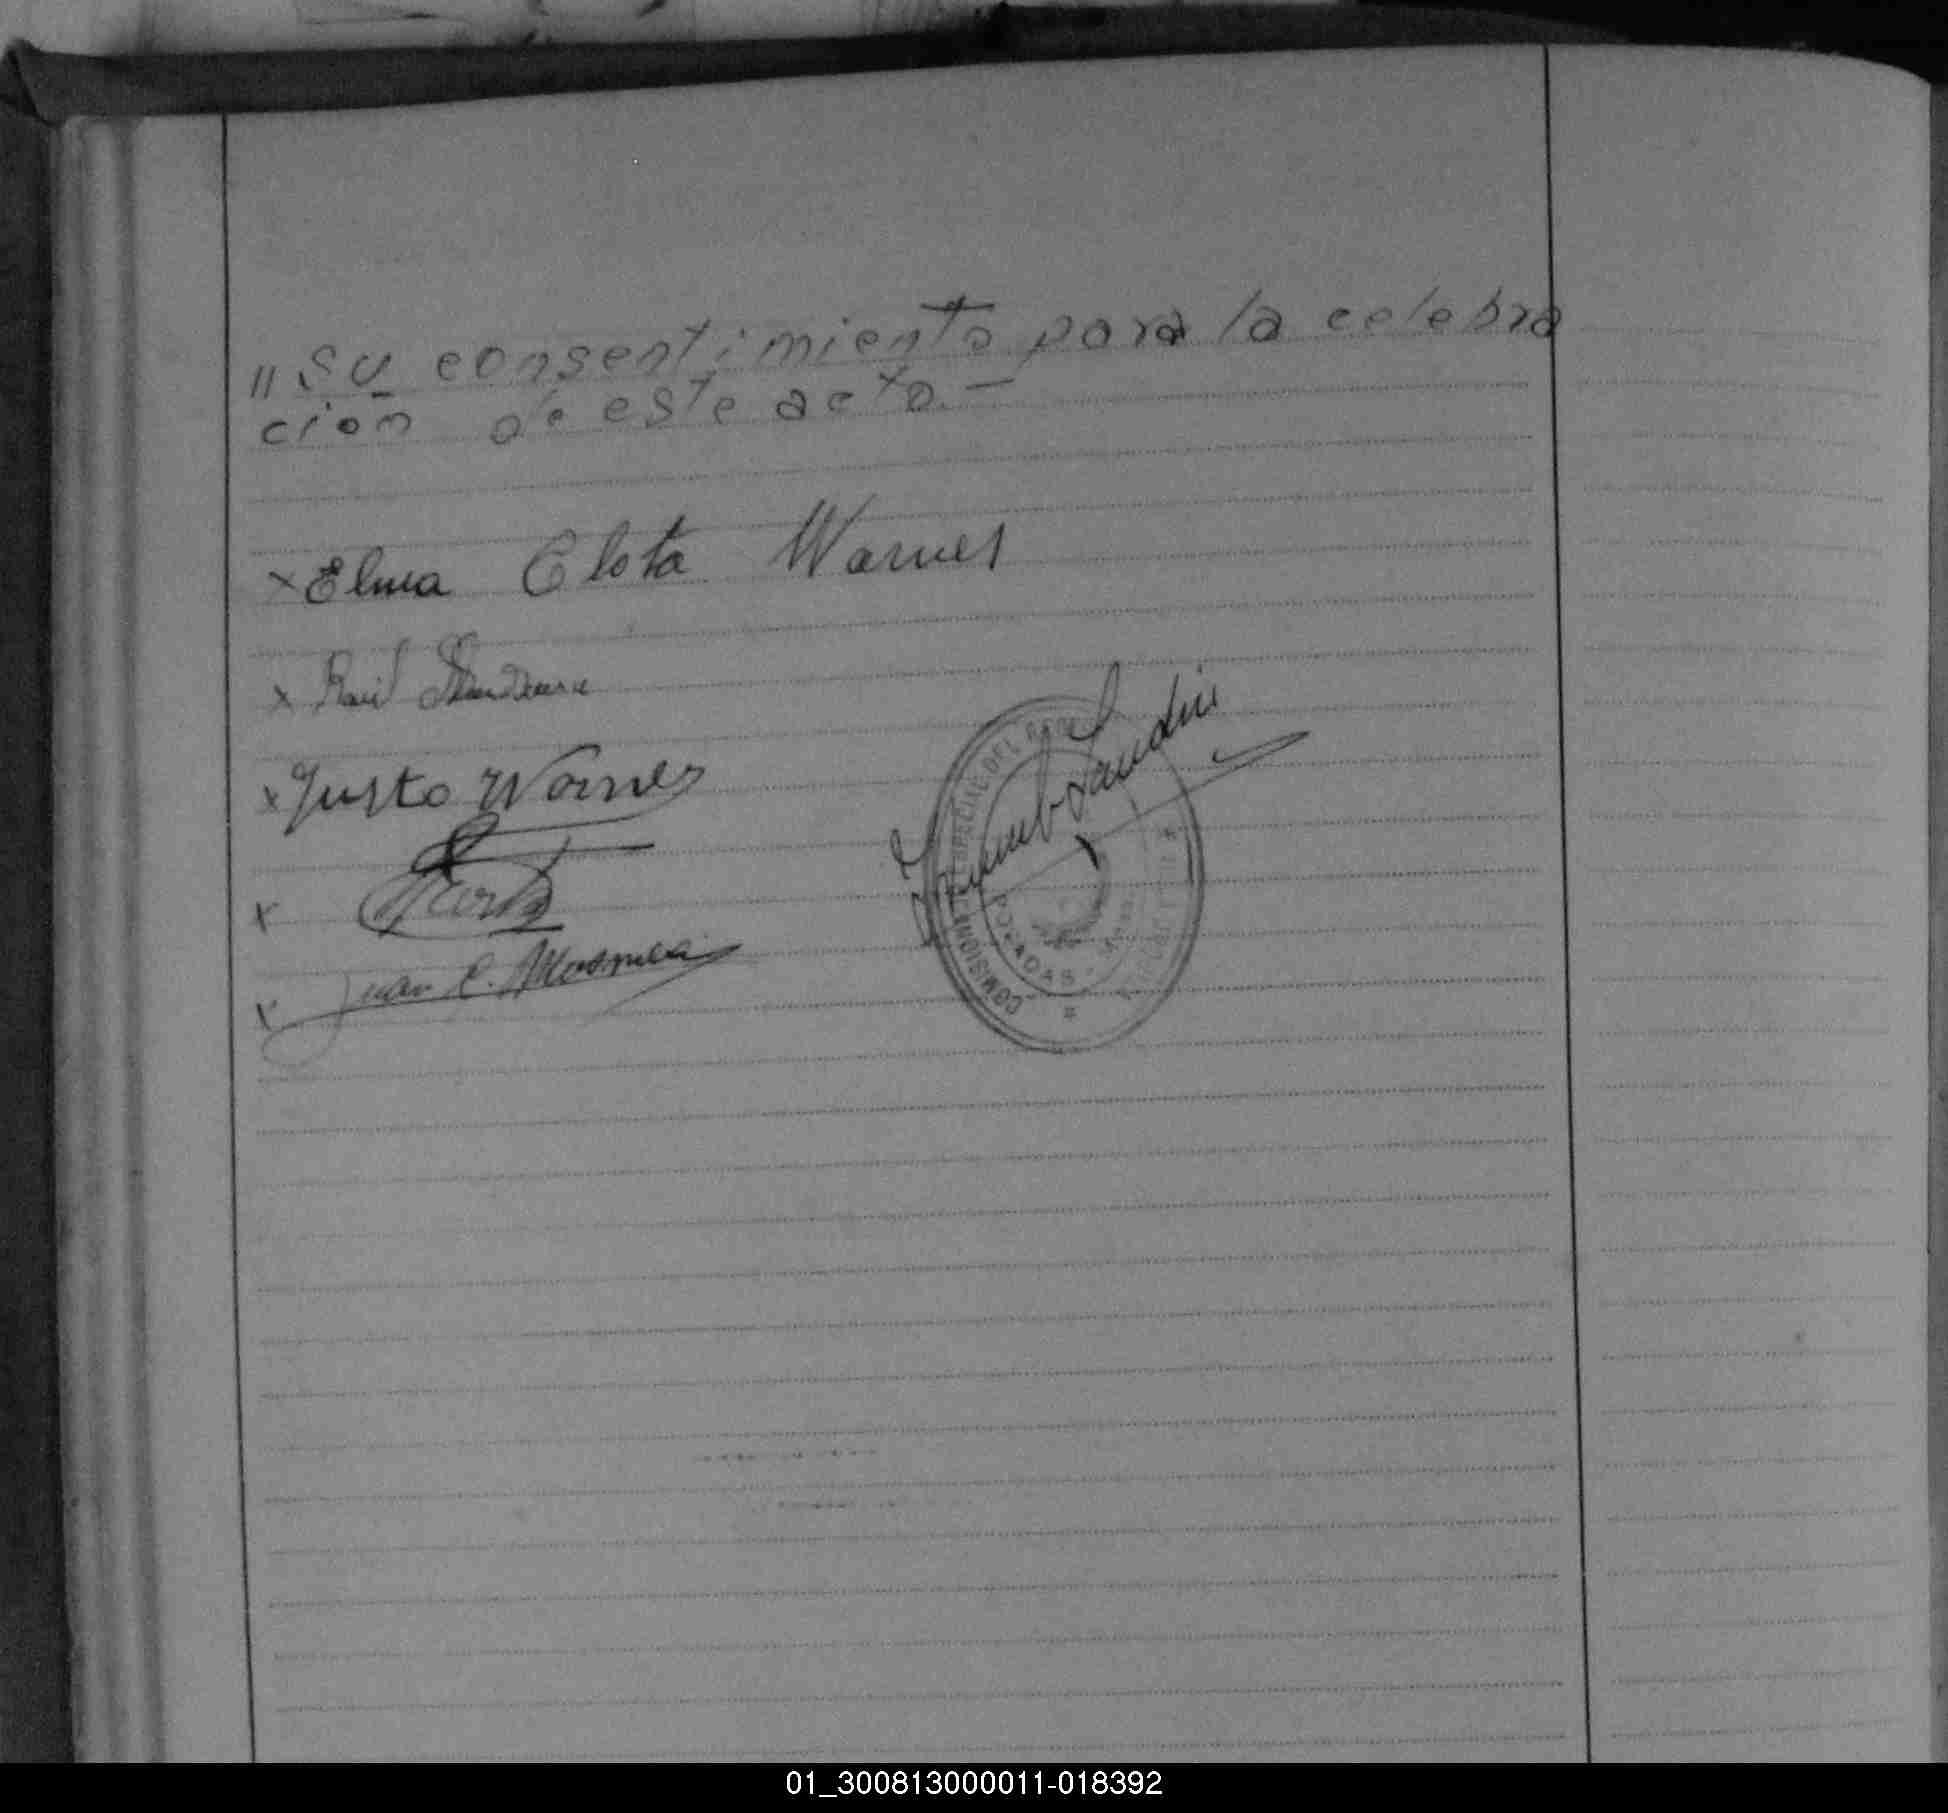 "su consentimiento para la celebra
cion de este acto.-
x Elma Clota Warnes
x Raúl
x Justo Warnes
x
x Juan C.
COMISION ESPECIAL DEL
POSADAS
01_300813000011-018392